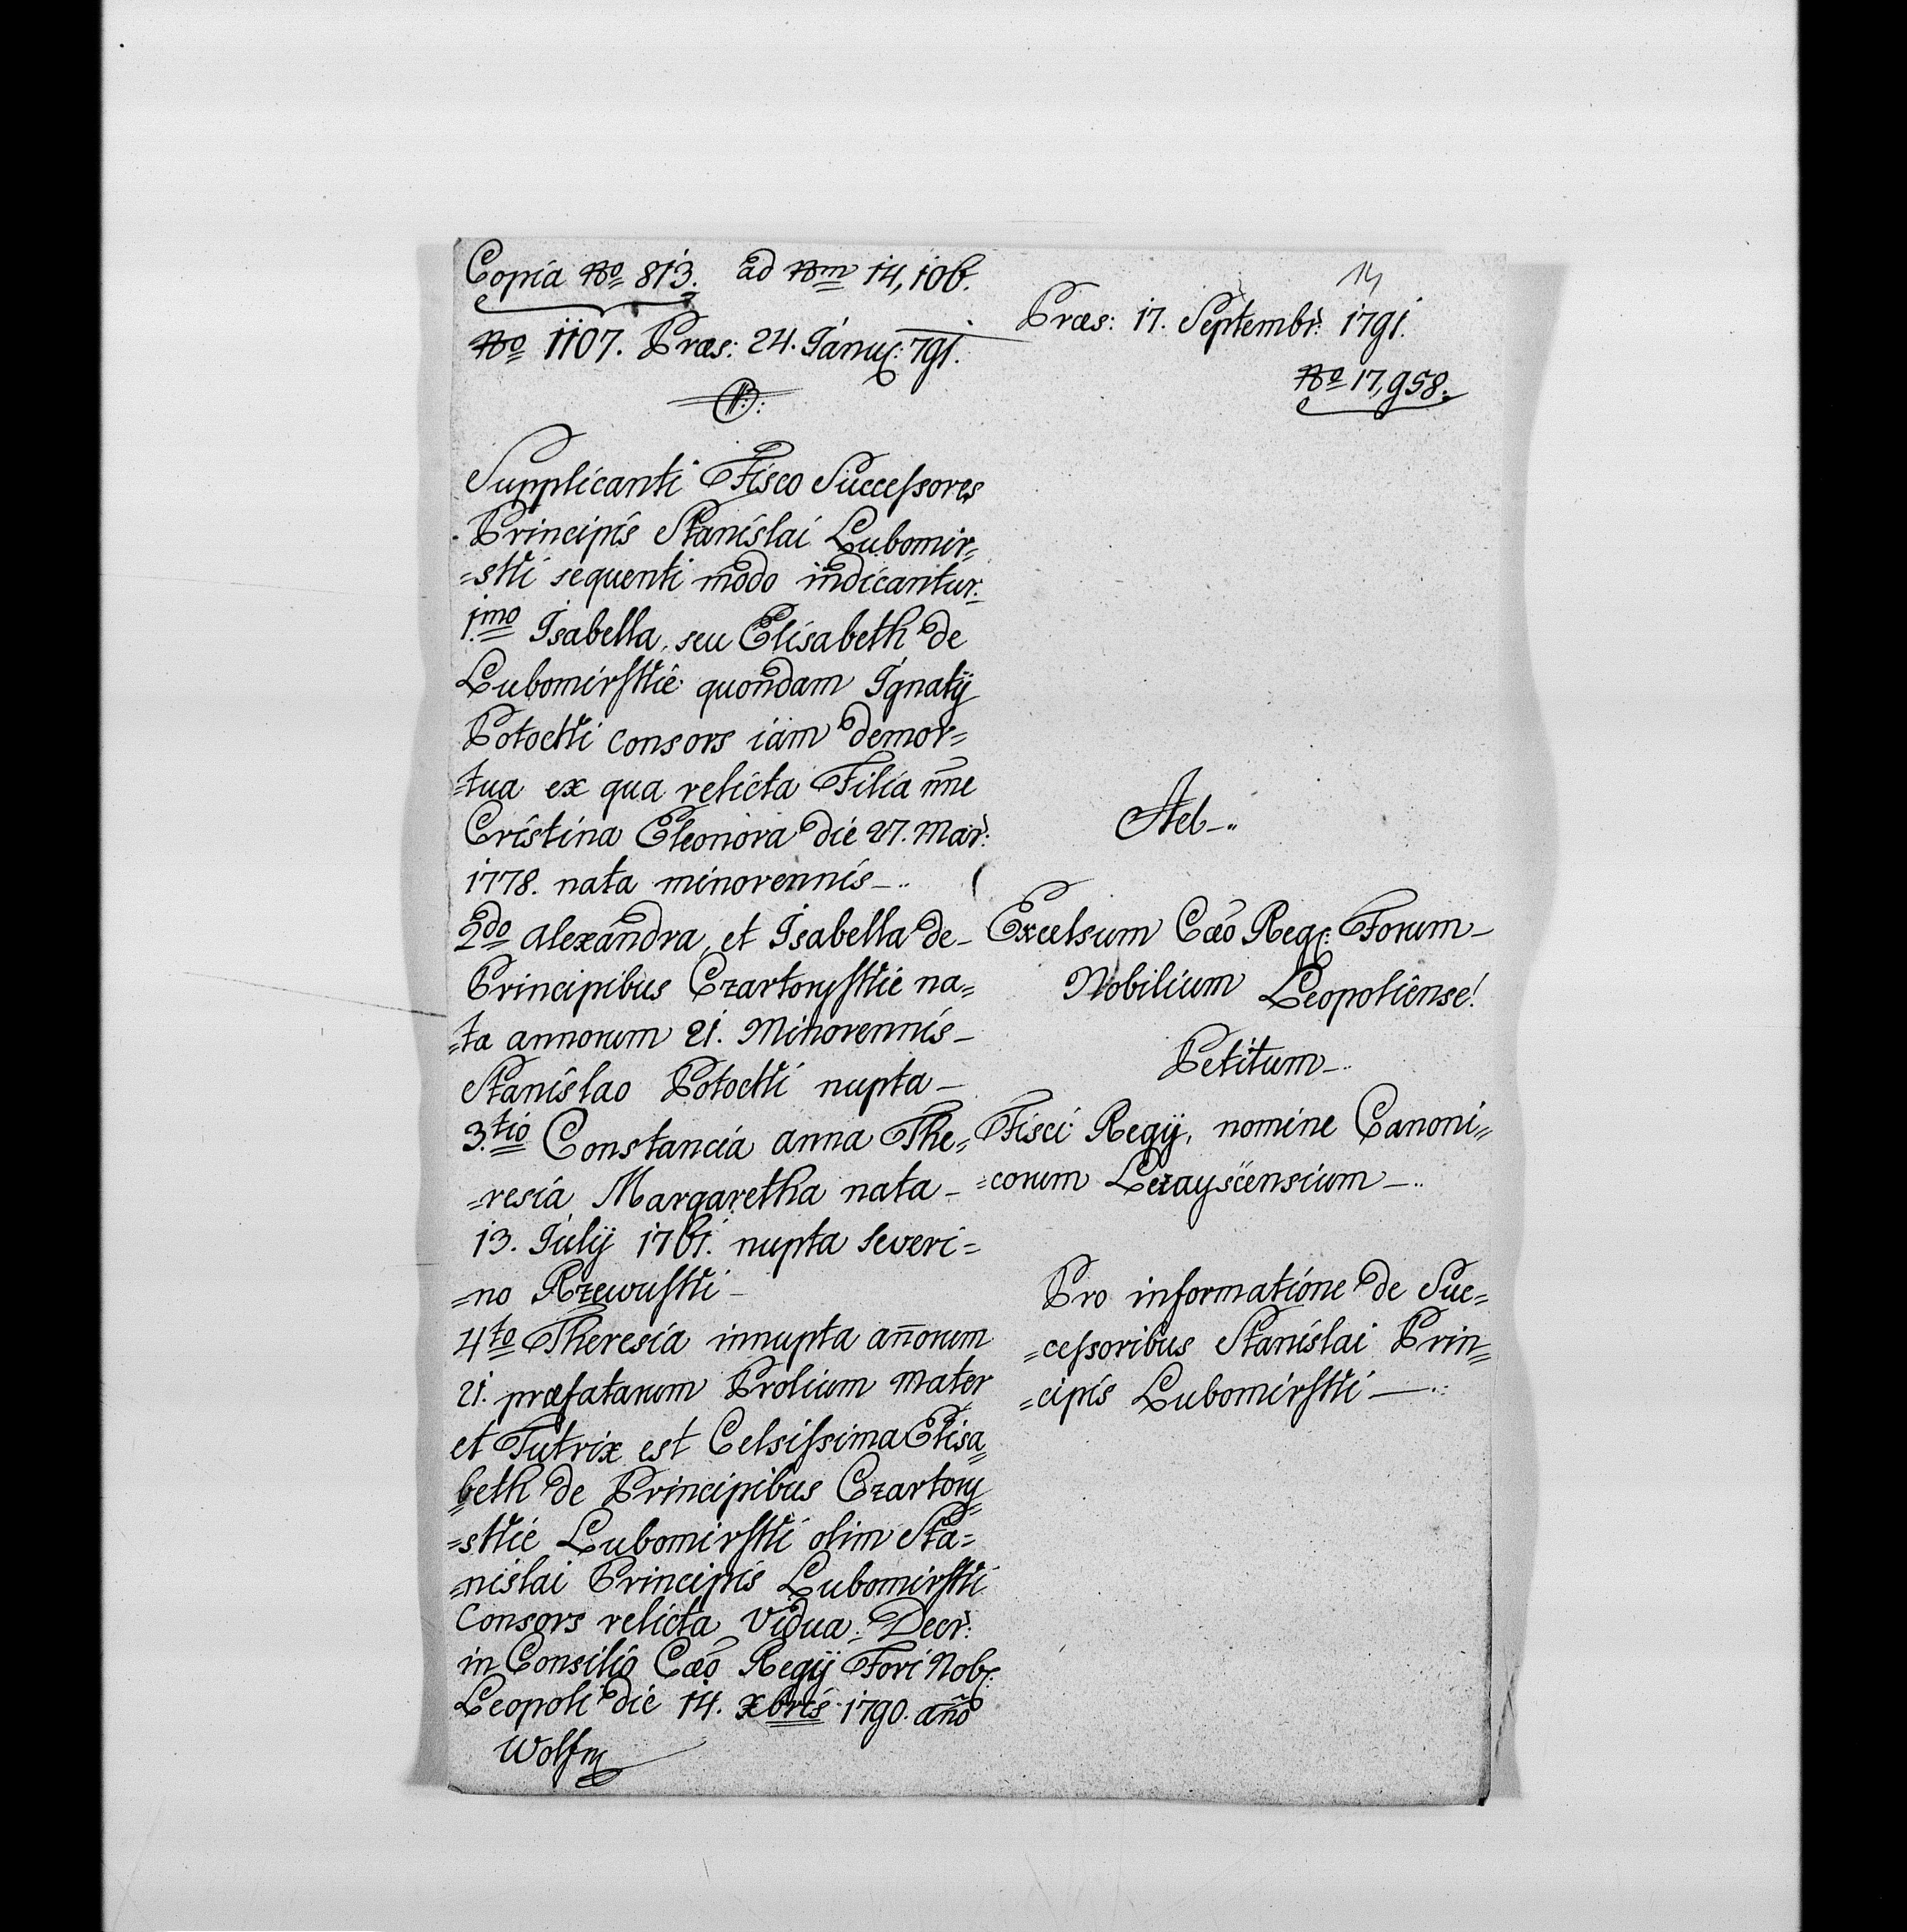 Copia No 813. ad Nm 14,106.
No 1107. Præs: 24. Januar: 791.
Supplicanti Fisco Successores
Principis Stanislai Lubomir=
=skki sequenti modo indicantur.
1.mo Isabella, seu Elisabeth de
Lubomirskkie quondam Ignatÿ
Potockki consors iam demor=
=tua ex qua relicta Filia nne
Cristina Eleonora die 27. Mar:
1778. nata minorennis_..
2do Alexandra, et Isabella de_
Principibus Czartoryskkie na=
=ta annorum 21. Minorennis_
Stanislao Potockki nupta_
3.tio Constancia Anna The=
=resia Margaretha nata_
13. Julÿ 1761. nupta Severi=
=no Rzewuskki_
4to Theresia innupta an̄orum
21. præfatarum Prolium Mater
et Tutrix est Celsissima Elisa=
=beth de Principibus Czartory=
=skkie Lubomirskki olim Sta=
=nislai Principis Lubomirskki
Consors relicta Vidua. Decr:
in Consilio Cæo Regÿ Fori Nob:
Leopoli die 14. xbris 1790. an̄o
Wolfm
14
Præs: 17. Septembr: 1791.
No 17,958.
Ad_..
Excelsum Cæo Reg: Forum_
Nobilium Leopoliense!
Petitum_..
Fisci Regÿ, nomine Canoni=
=corum Lezayscensium_..
Pro informatione de Suc=
=cessoribus Stanislai Prin=
=cipis Lubomirskki_..